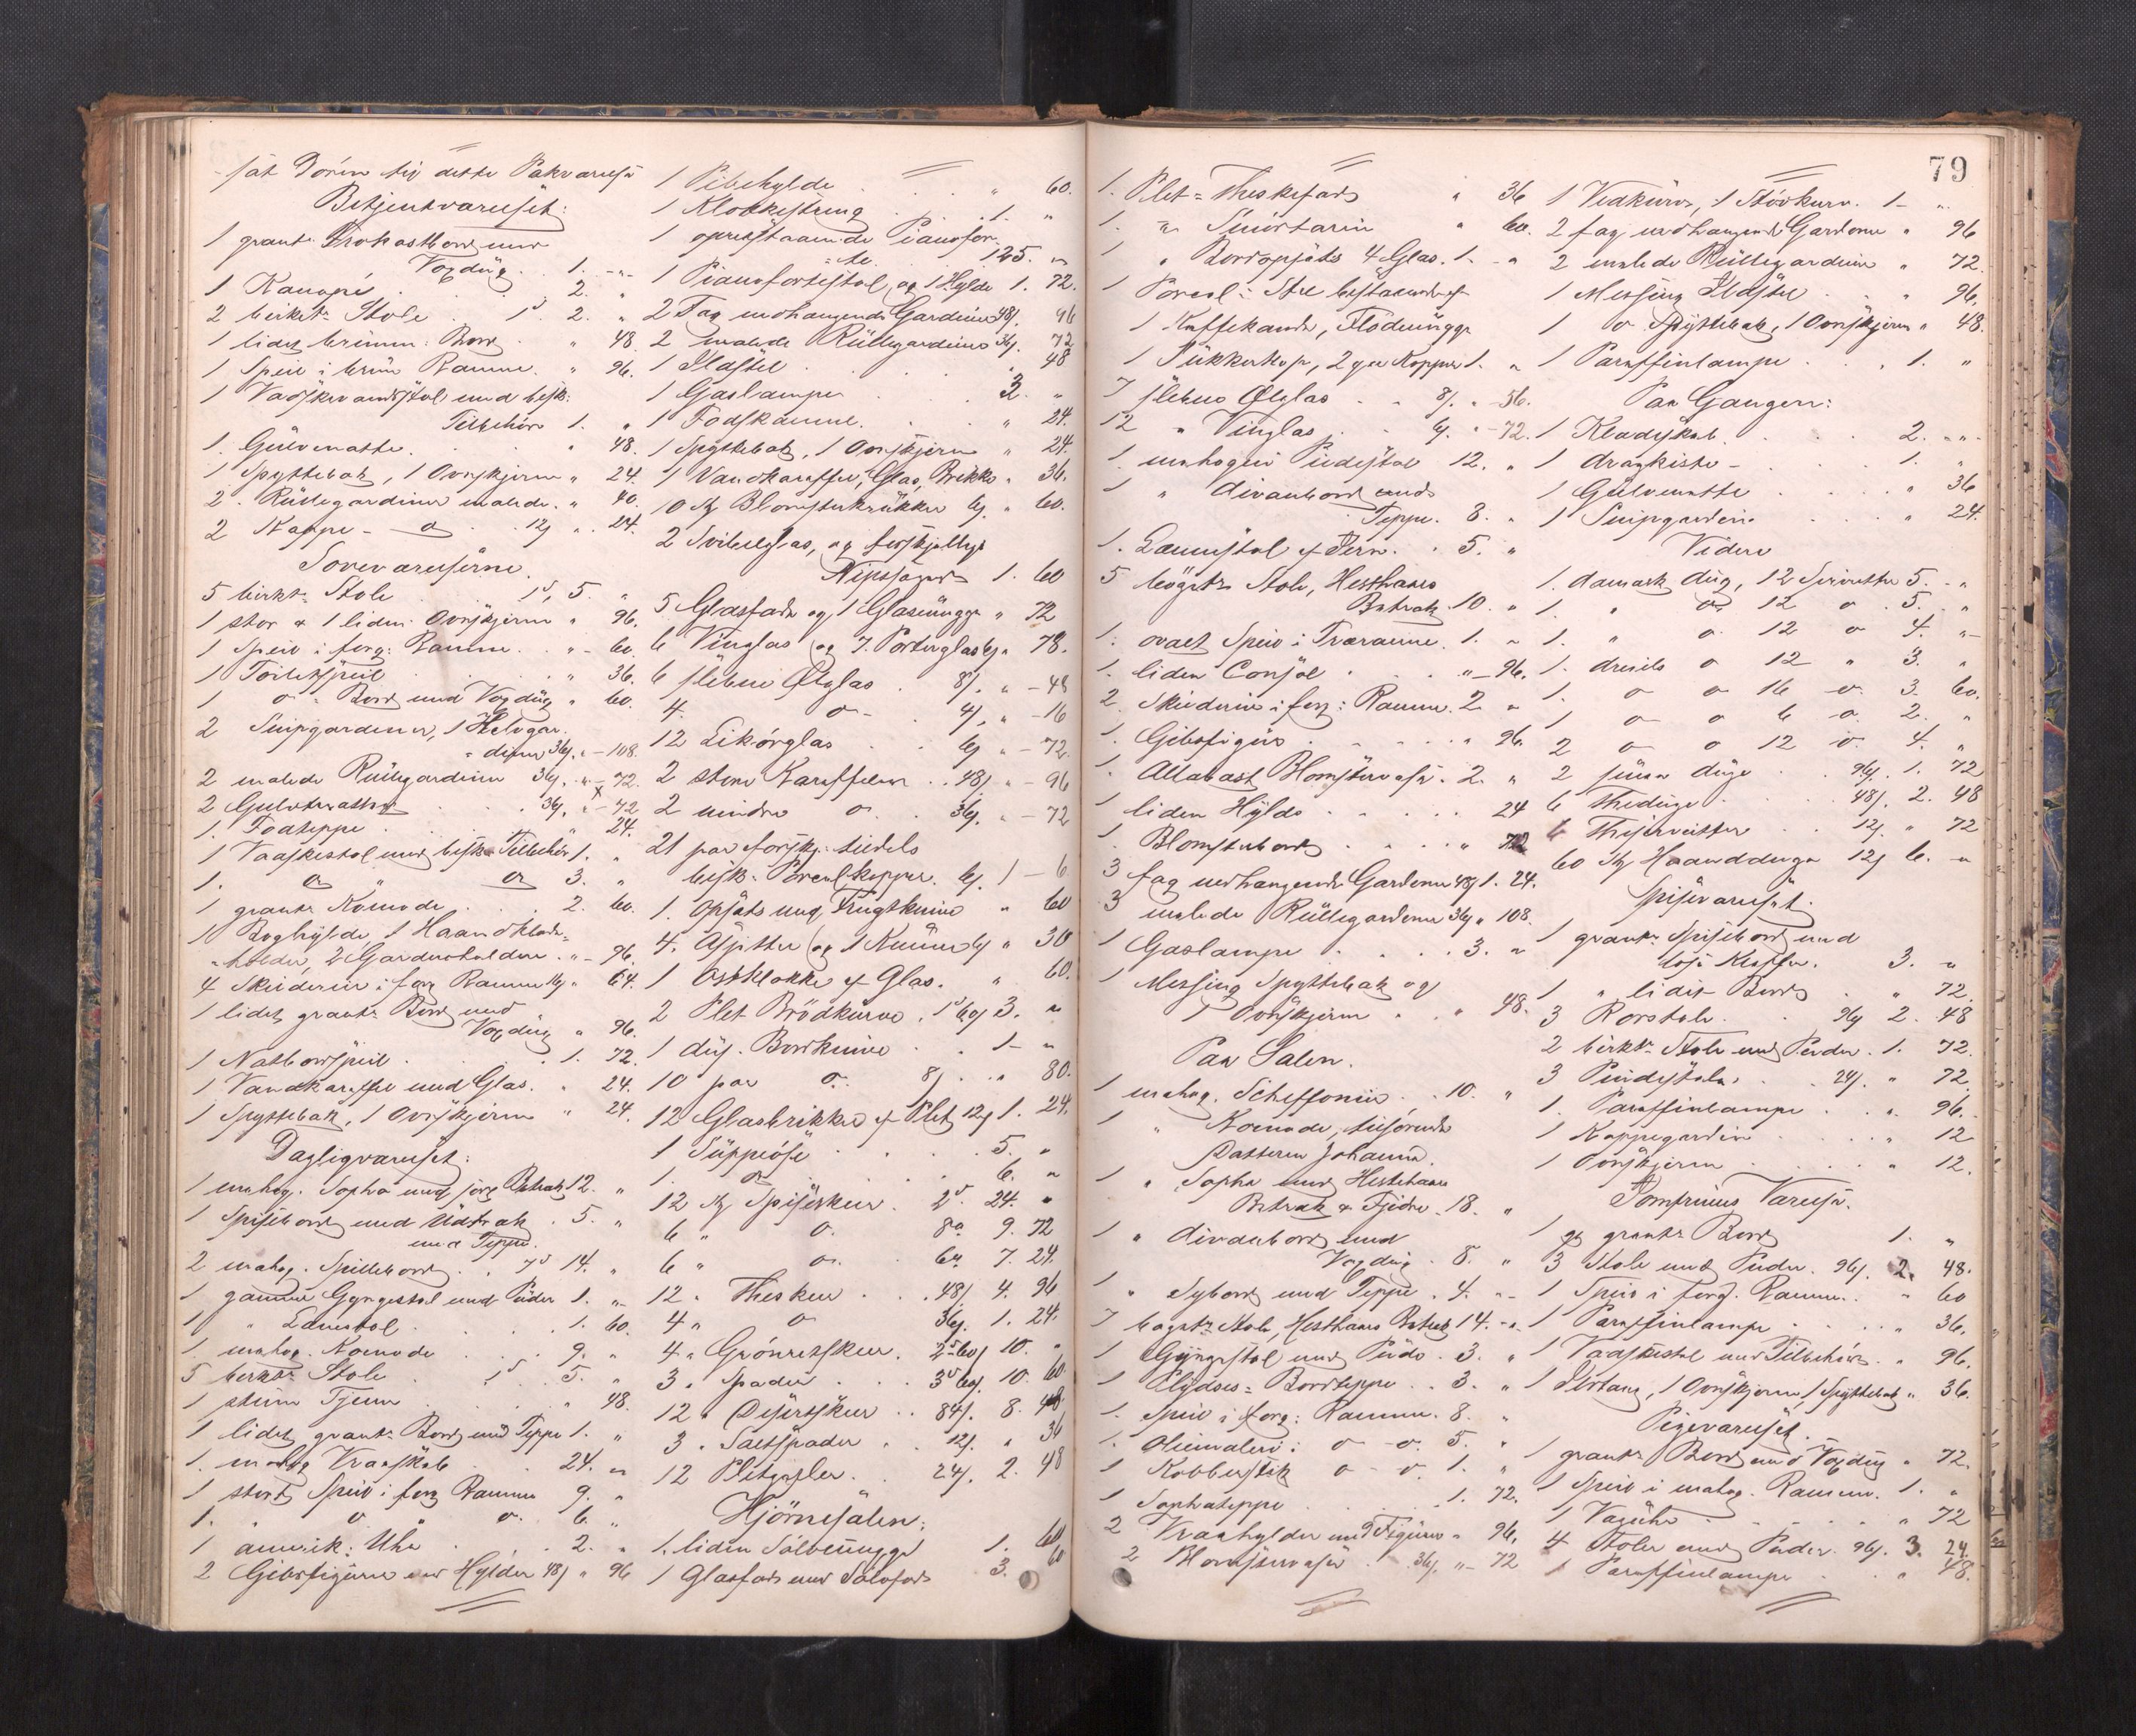 sat Dören til dette Pakværelse
Betjentværelset:
1 grant. Frokostbord med
Voxdüg . . 1. -"-
1 Kanape . . . 2. "
2 birket: Stole . 1s. 2. "
1 lidet brunm: Bord . " 48.
1 Speil i brun Ramme. " 96.
1 Vaskevandsstol med besk:
Tilbehör 1. "
1. Gülvmatte . . " 48.
1 Spyttebak, 1 Ovnskjerm " 24.
2. Rüllegardiner malede. " 40.
2 Kappe - o . 12s " 24.
Soveværelserne.
5 birket: Stole . . 1s. 5. "
1 stor & 1 liden Ovnskjerm " 96.
1 Speil i forg: Ramme. . " - 60.
1 Toiletspeil . . " 36.
1 o - Bord med Voxdüg " 60.
2 Snipgardiner, 1 Helgar-
diner 36s. " - 108.
2 malede Rüllegardiner 36s. " - 72.
2 Gulvmatter . . 36s. " - 72
1. Fodteppe . . . 24.
1 Vaaskestol med besk. Tilbehör 1. "
1. o " o 3. "
1 grant: Komode . . . 2. 60.
1 Boghylde, 1 Haandklæde-
holder, 2 Gardinholdere . " - 96.
4 Skilderier i forg Ramme 16s " 64.
1 lidet grant: Bord med
Voxdüg " 96.
1 Natbordspeil . . . 1. 72.
1 Vandkaraffel med Glas. " 24.
1 Spyttebak, 1 Ovnskjerm " 24.
Dagligværelset:
1 mahog. Sopha med sort Betræk 12. "
1 Spisebord med Udtræk . 5. "
med Teppe.
2 mahog. Spillebord . . 7s 14. "
1 gammel Gyngestol med Püder 1. "
1 " Lænestol . . . 1. 60.
1. mahog. Komode . . . 9. "
5 birket: Stole . . 1s 5. "
1 steiin . . " 48.
1 lidet grant: Bord med Teppe 1. "
1. mahog Kraaskab . . 24. "
1 stort Speil i forg Ramme 9. "
1. " o " o. 6. "
1 amerik: Uhr . . . 2. "
2 Gibsfigürer med Hylder 48s " 96
1 Pibehylde . . . " 60.
1 Klokkestreng . . . 1. "
1 opretstaaende Pianofor-
te . . 125. "
1 Pianofortestol, og 1 Hylde 1. 72.
2 Fag nedhængende Gardiner 48s. 96
2 malede Rüllegardiner 36s. 72
1 Ildstel . . . " 48
1 Gaslampe . . . 3. "
1 Fodskammel . . . " 24.
1 Spyttebak, 1 Ovnskjerm " 24.
1 Vandkaraffel, Glas, Brikke " 36.
10 stk Blomsterkrükker 6s. " 60.
2 Svibelglas, og forskjellige
Nipssager 1. 60
5 Glasfade og 1 Glasmügge " 72
6 Vinglas og 7. Porterglas 6s " 78.
6 slebne Ölglas . 8s. " - 48
4. o - . 4s. " - 16
12 Likörglas . . 6s " - 72.
2 store Karaffeler . . 48s " - 96
2 mindre o. . 36s. " - 72
21 par forskj. tildels
besk: Porcelkopper. 6s. 1 - 6.
1. Opsats med Frugtknive " 60
4. Asjetter og 1 6s " 30
1 Osteklokke af Glas. " 60.
2 Plet Brödkürve . 1s 60s 3. "
1 düs. Bordknive . . 1 - "
10 par o. 8s . . " 80.
12 Glasbrikker af Plet 12s 1. 24.
1 Süppeöse . . . . 5. "
1. o . . . . 6. "
12 stk Spiseskeer . 2s. 24. "
6 " o. 8o 9. 72
6 " o. . 6o. 7. 24.
12 " Theskeer . . 48s 4. 96
4 " o 36s. 1. 24.
4 " Grönretskeer . 2s 60s 10. "
3. Spader . . . 3s 60s. 10. 60
12 " Desertskeer . . 84s. 8. 48
3. Saltspader . . 12s. " 36
12 Pletgafler . . 24s. 2. 48
Hjörnesalen:
1. liden Sölvmügge 1. 60
1 Glasfad med Sölvfod 3. 60
79
1. Plet-Theskefad " 36
1. " Smörtærin " 60.
1. " Bordopsats 4 Glas. 1. - "
1 Porcel: Stel bestaaende af
1 Kaffekande, Flödemügge
1 Sükkerkop, 2 par Kopper 1. "
7 slebne Ölglas . . 8s. " - 56.
12 " Vinglas . . 6s. " - 72.
1. mahogni Piedestal 12. "
1 " divanbord med
Teppe. 8. "
1. Lænestol af Jern . . 5. "
5 bögetr. Stole, Hesthaars
Betræk 10. "
1. ovalt Speil i Træramme. 1. "
1. liden Consol . . . " - 96.
2. Skilderier i forg: Ramme. 2 "
1. Gibsfigür . . . . . " 96.
1. Allabast Blomstervase . 2. "
1 liden Hylde . . . . . 24
1. Blomsterbord . . . " 72
3 fag nedhængende Gardiner 48s 1. 24.
3 malede Rüllegardiner 36s " 108
1 Gaslampe . . . . 3. "
1 Messing Spyttebak og
1 Ovnskjerm . . " 48.
Paa Salen.
1 mahog. Scheffonier . . 10. "
1 " Komode, tilhörende
Datteren Johanna.
1 " Sopha med Hestehaars
Betræk & Fjedre . 18. "
1 " divanbord med
Voxdüg . 8. "
1 " Sybord med Teppe . 4. - "
7 bögetr: Stole, Hesthaars Betræk 14. - "
1 Gyngestol med Püde . 3. "
1 Plydses-Bordteppe . . 3. "
1. Speil i forg: Ramme. 8. "
1. Oliemaleri: o - o. 5. "
1 Kobberstik o - o. 1. "
1 Sophateppe . . . 1. 72.
2 Kraahylder med Figürer " 96.
2 Blomstervaser . 36s. " - 72
1 Vedkürv, 1 Stövkurv. 1 - "
2 fag nedhængende Gardiner " 96
2 malede Rüllegardiner " 72.
1 Messing Ildstel . . . " 96.
1 o Spyttebak, 1 Ovnskjerm " 48.
1 Paraffinlampe . . . 1. "
Paa Gangen:
1 Klædeskab . . . . 2. " "
1 dragkiste - . . . 1. "
1 Gülvmatte . . . . " 36
1 Snipgardin . . . " 24.
Videre
1. damask düg, 12 Servietter 5. - "
1. " o 12 o . 5. "
1. " o 12 o 4. "
1. dreiels o 12 " 3. "
1. o o 16 o. 3. 60.
1 o o 6 o. 2. "
2 o o 12 o. 4. "
2 smaa düge . . 96s. 1. 72
6 Thedüge . . . 48s. 2. 48
6 Theservietter . . 12s. " 72
60 stk Haandduge 12s 6. "
Spiseværelset.
1 grant: Spisebord med
löse Klapper. 3. "
1 " lidet Bord . " 72.
3 Rorstole . . 96s 2. 48
2 birket: Stole med Püder . 1. 72.
3 Pindestole . . . 24s. " 72.
1. Paraffinlampe . . " 96.
1 Kappegardin . . . " 12
1 Ovnskjerm . . . " 12.
Jomfruens Værelse.
1 gl grant: Bord 1. "
3 Stole med Püder. 96s. 2. 48.
1 Speil i forg. Ramme . . " 60
1 Paraffinlampe . . . " 36.
1 Vaaskestol med Tilbehör. " 96.
1 Ildtang, 1 Ovnskjerm, 1 Spyttebak " 36.
Pigeværelset.
1 grant: Bord med Voxdüg " 72.
1 Speil i mahog. Ramme. 1. "
1 Vægühr . . . . " 72
4 Stoler med Püder. 96s. 3. 24.
1 Paraffinlampe . . " 48.